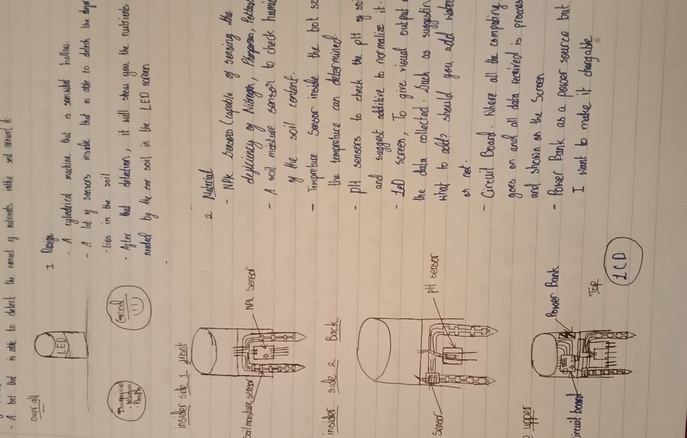 - A bot that is able to detect the amount of nutrients in the soil around it
over all
LED
Good
1 Design
- A cylindrical machine that is somwhat hollow.
- A lot of sensors inside that is able to detech the
in the soil
- After that detection, it will show you the nutrients
needed by the soil in the LED screen
insider side 1 front
soil moisture sensor
NPL Sensor
insider side 2 Back
Sensor
pH sensor
upper
Power Bank
circuit board
Top
LCD
2 Material
- NPK Sensors (capable of sensing the
deficiency of Nitrogen, Phosporous, Potass
- A soil moisture sensor to check humi
of the soil content.
- Tempreture Sensor inside the bot so
the tempreture can determined
- pH sensors to check the pH of soi
and suggest additive to normalize it.
- LeD screen, To give visual output o
the data collected. Such as suggestin
what to add? should you add wate
or not.
- Circuit Board. Where all the computing
goes on and all data received is proces
and shown on the Screen
- Power Bank as a power source but
I want to make it chargable